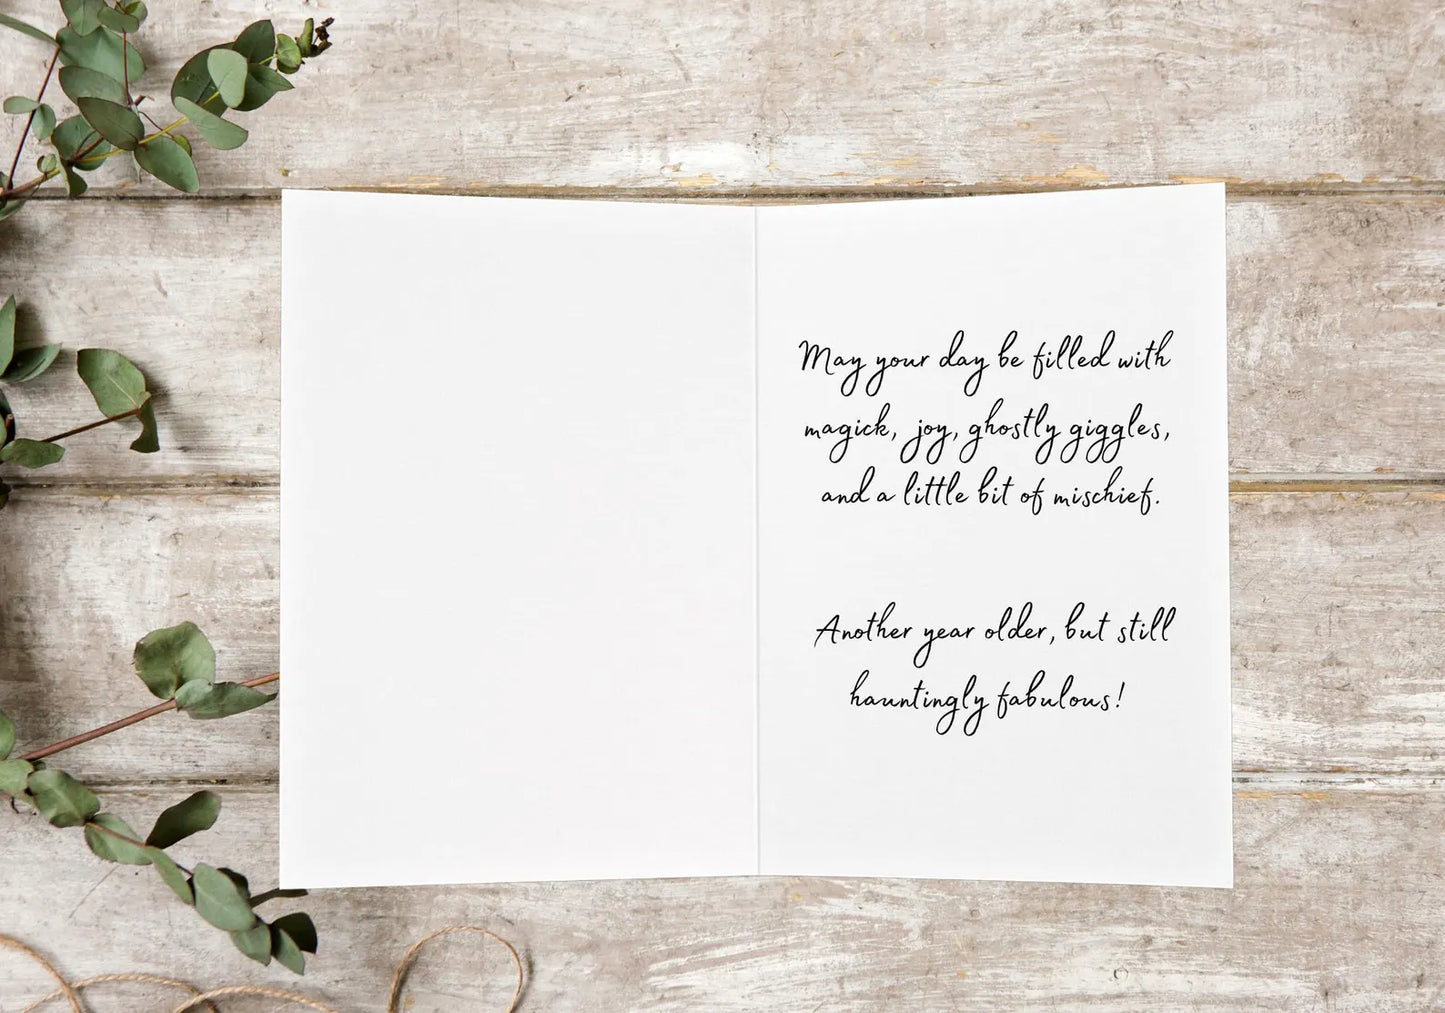 May your day be filled with
magick, joy, ghostly giggles,
and a little bit of mischief.
Another year older, but still
hauntingly fabulous!